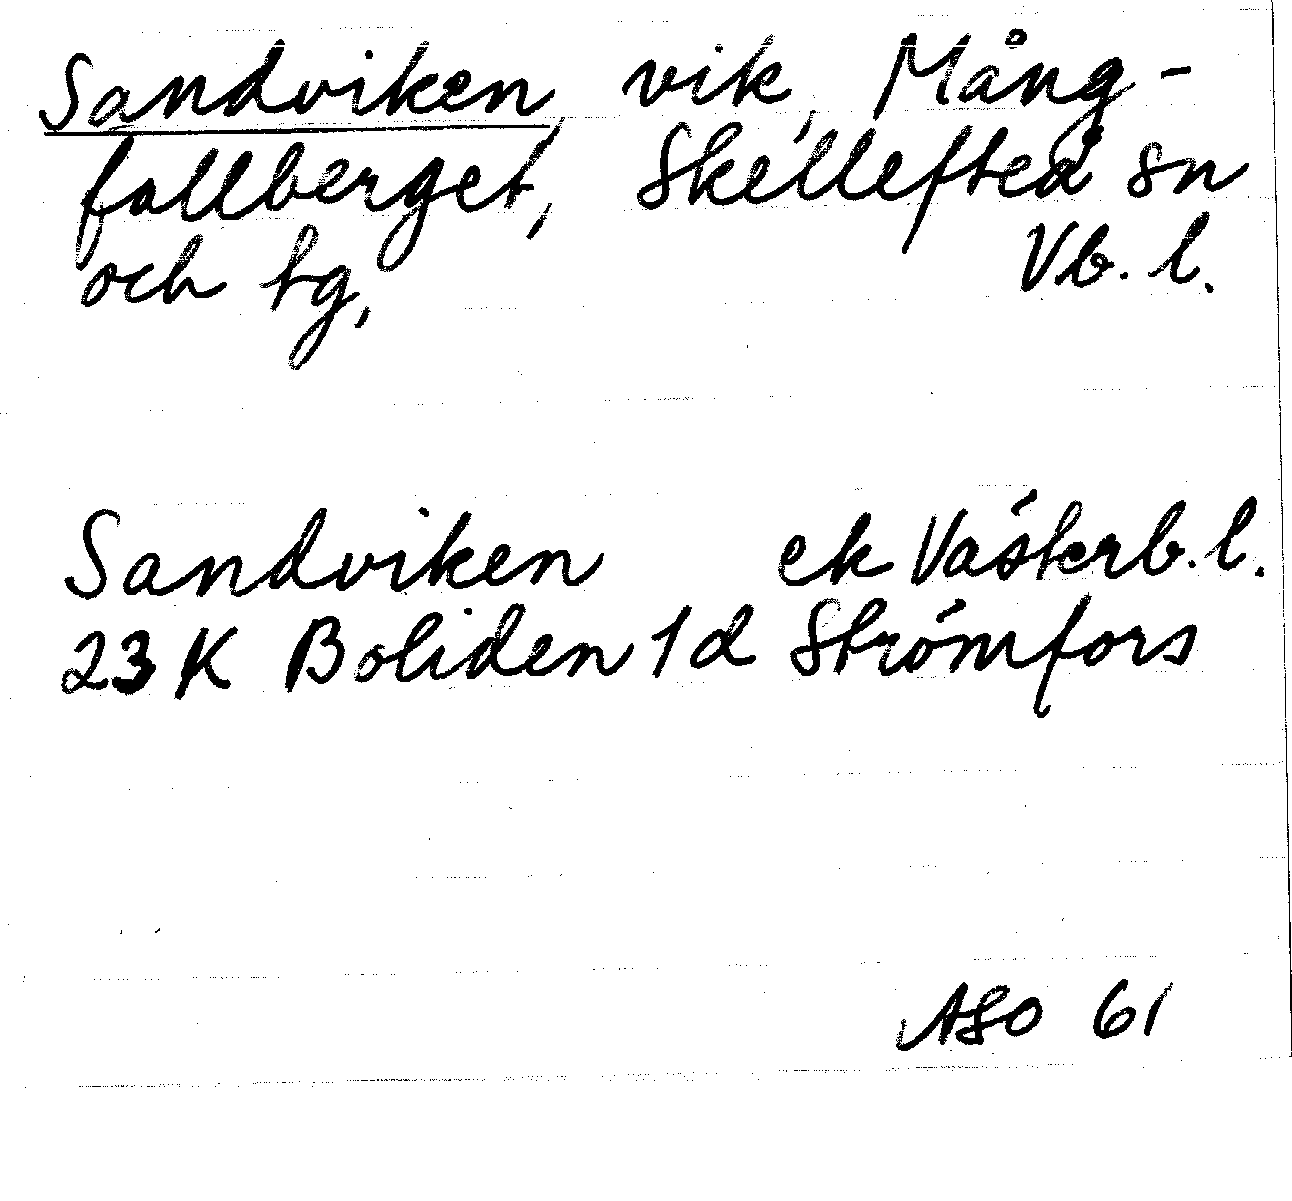 Sandviken, vik, Mång-
fallberget, Skellefteå sn
och tg, Vb. l.
Sandviken ek Västerb. l.
23K Boliden 1d Strömfors
ASO 61